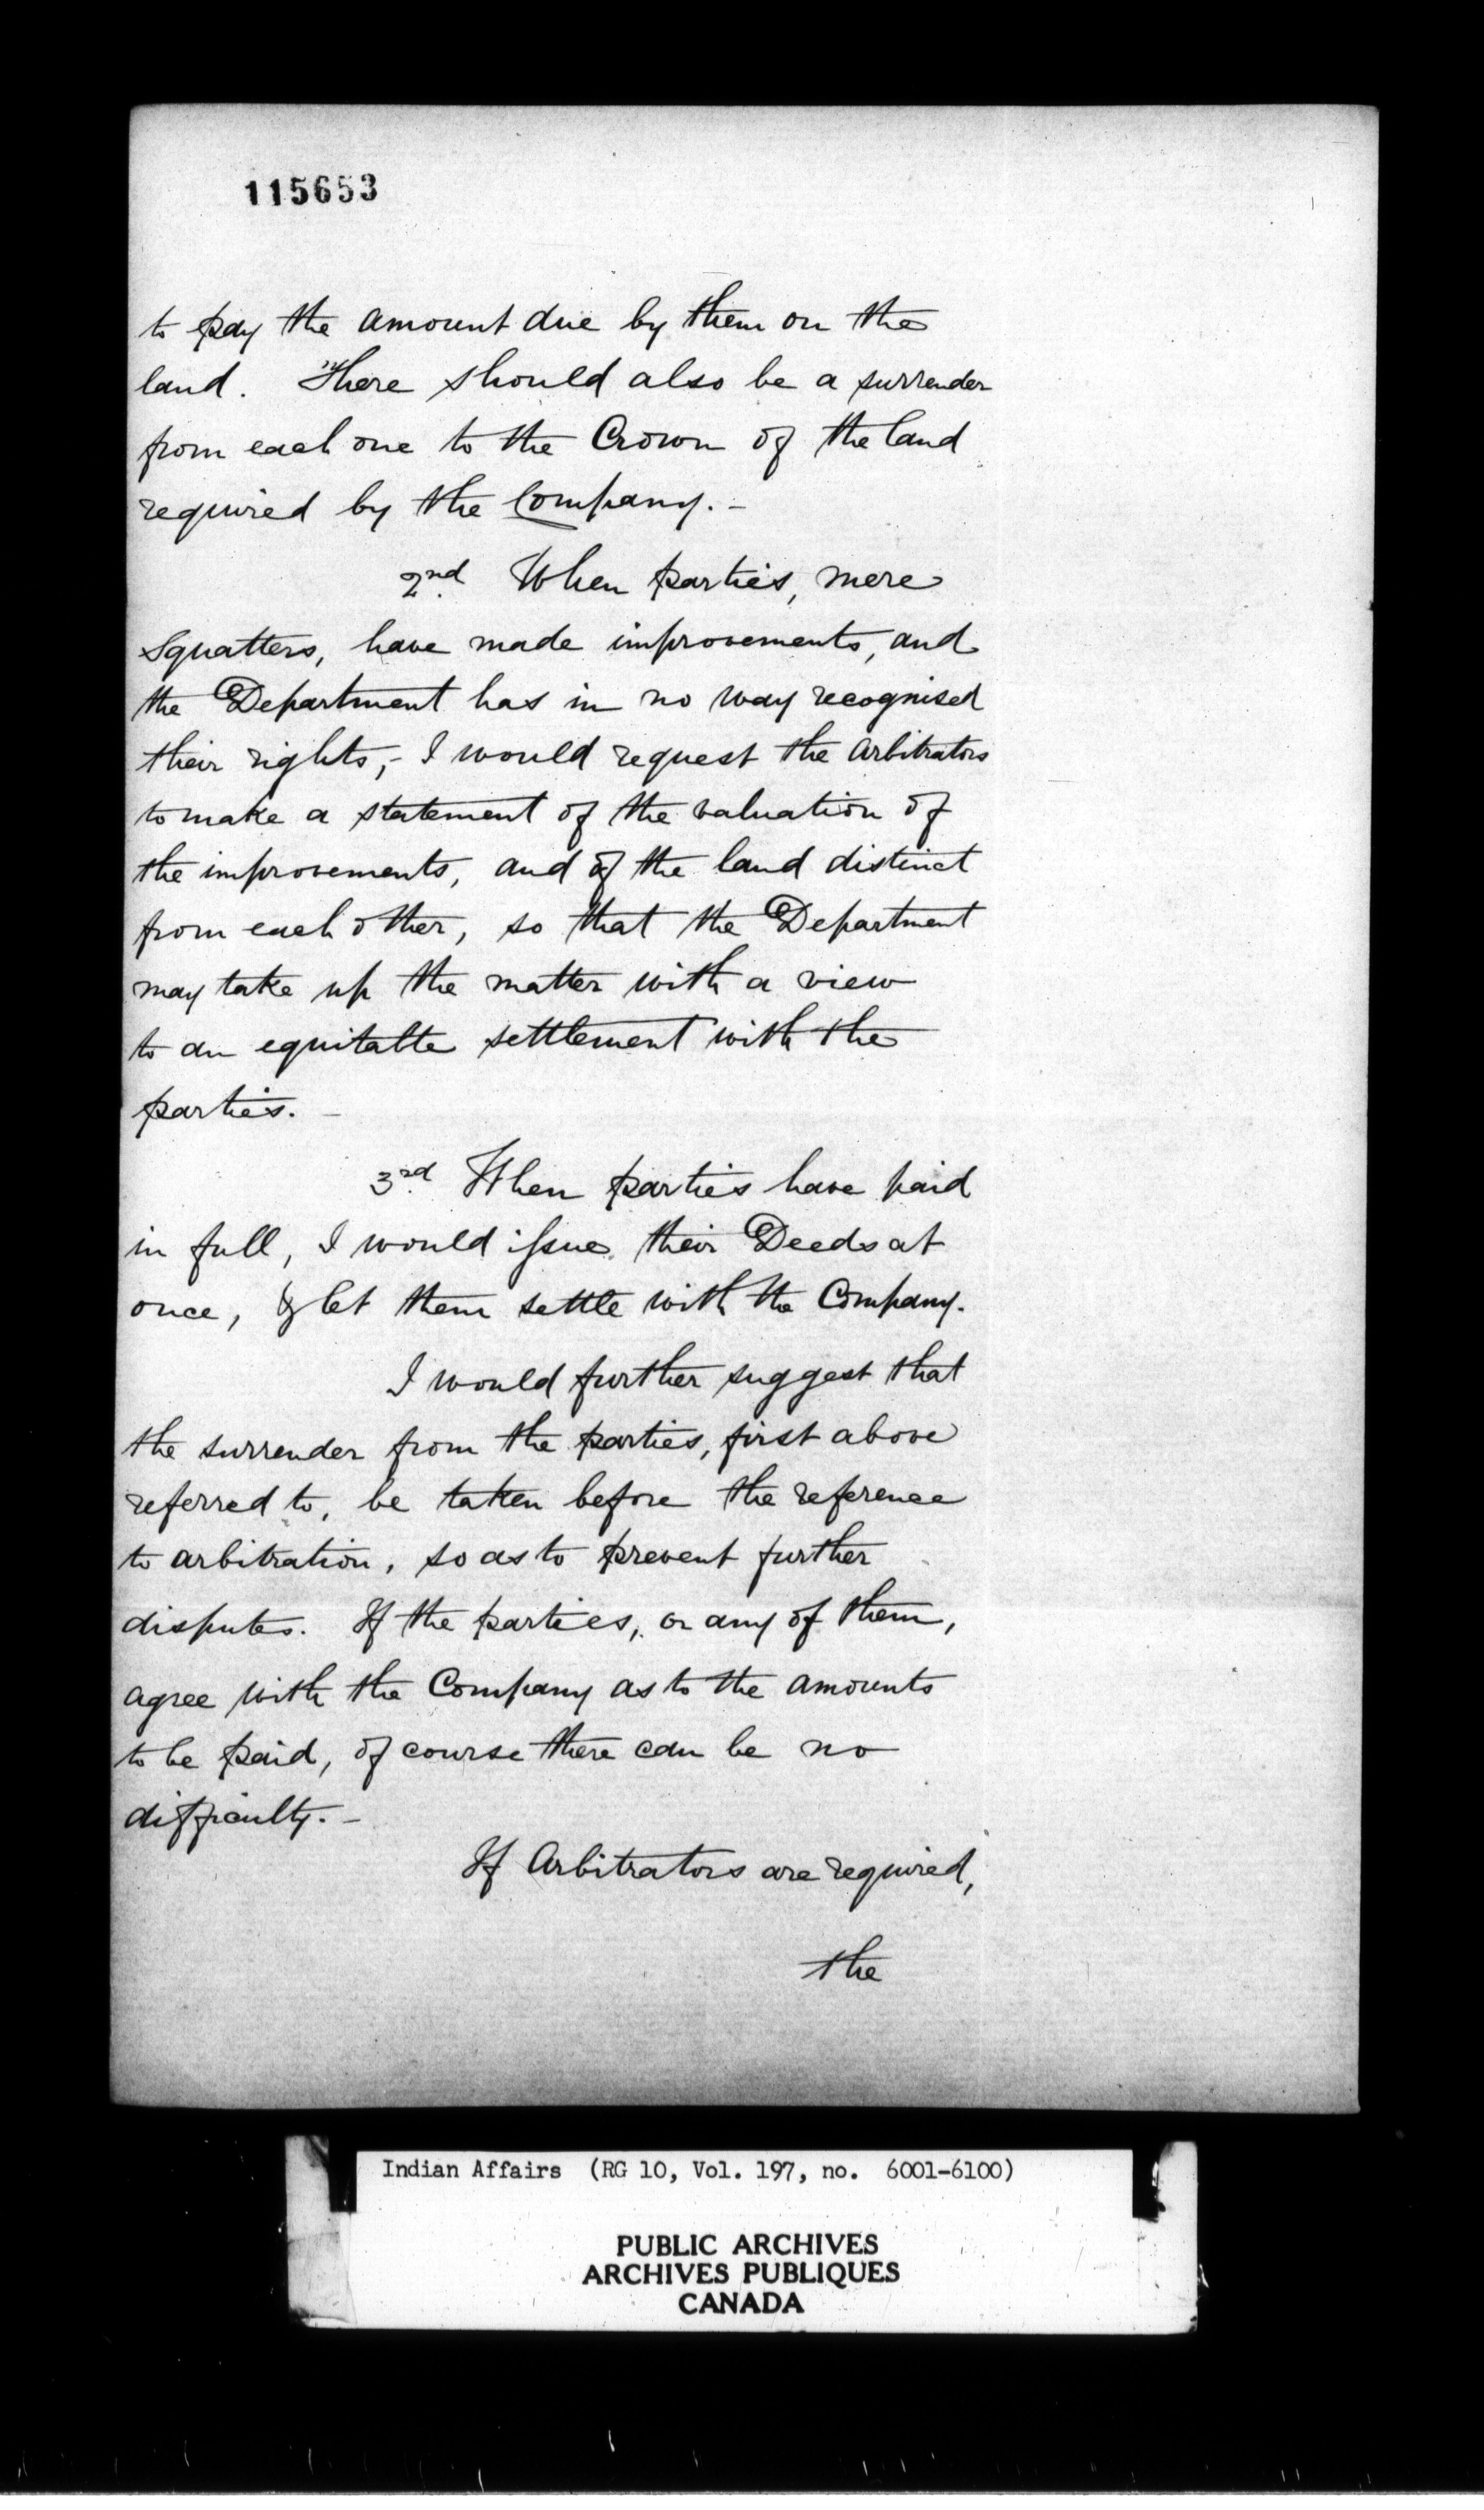 115653
to pay the amount due by them on the
land. There should also be a surrender
from each one to the Crown of the land
required by the Company. -
2nd When parties, mere
Squatters, have made improvements, and
the Department has in no way recognised
their rights, - I would request the Arbitrators
to make a statement of the valuation of
the improvements, and of the land distinct
from each other, so that the Department
may take up the matter with a view
to an equitable settlement with the
parties. -
3rd When parties have paid
in full, I would issue their Deeds at
once, & let them settle with the Company.
I would further suggest that
the surrender from the parties, first above
referred to, be taken before the reference
to arbitration, so as to prevent further
disputes. If the parties, or any of them,
agree with the Company as to the amounts
to be paid, of course there can be no
difficulty. -
If Arbitrators are required,
the
Indian Affairs (RG 10, Vol. 197, no. 6001-6100)
PUBLIC ARCHIVES
ARCHIVES PUBLIQUES
CANADA